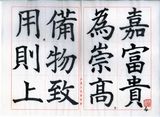 嘉富貴
為崇高
備物致
用則上